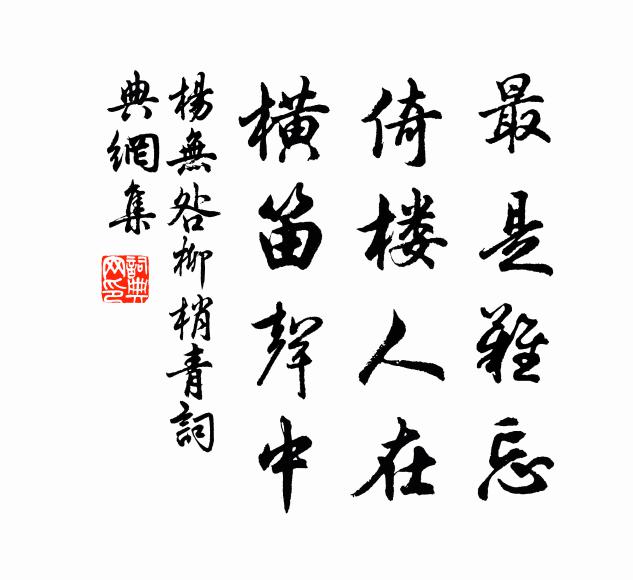 最是難忘
倚楼人在
横笛聲中
楊無咎柳梢青詞
典網集
詞典網印